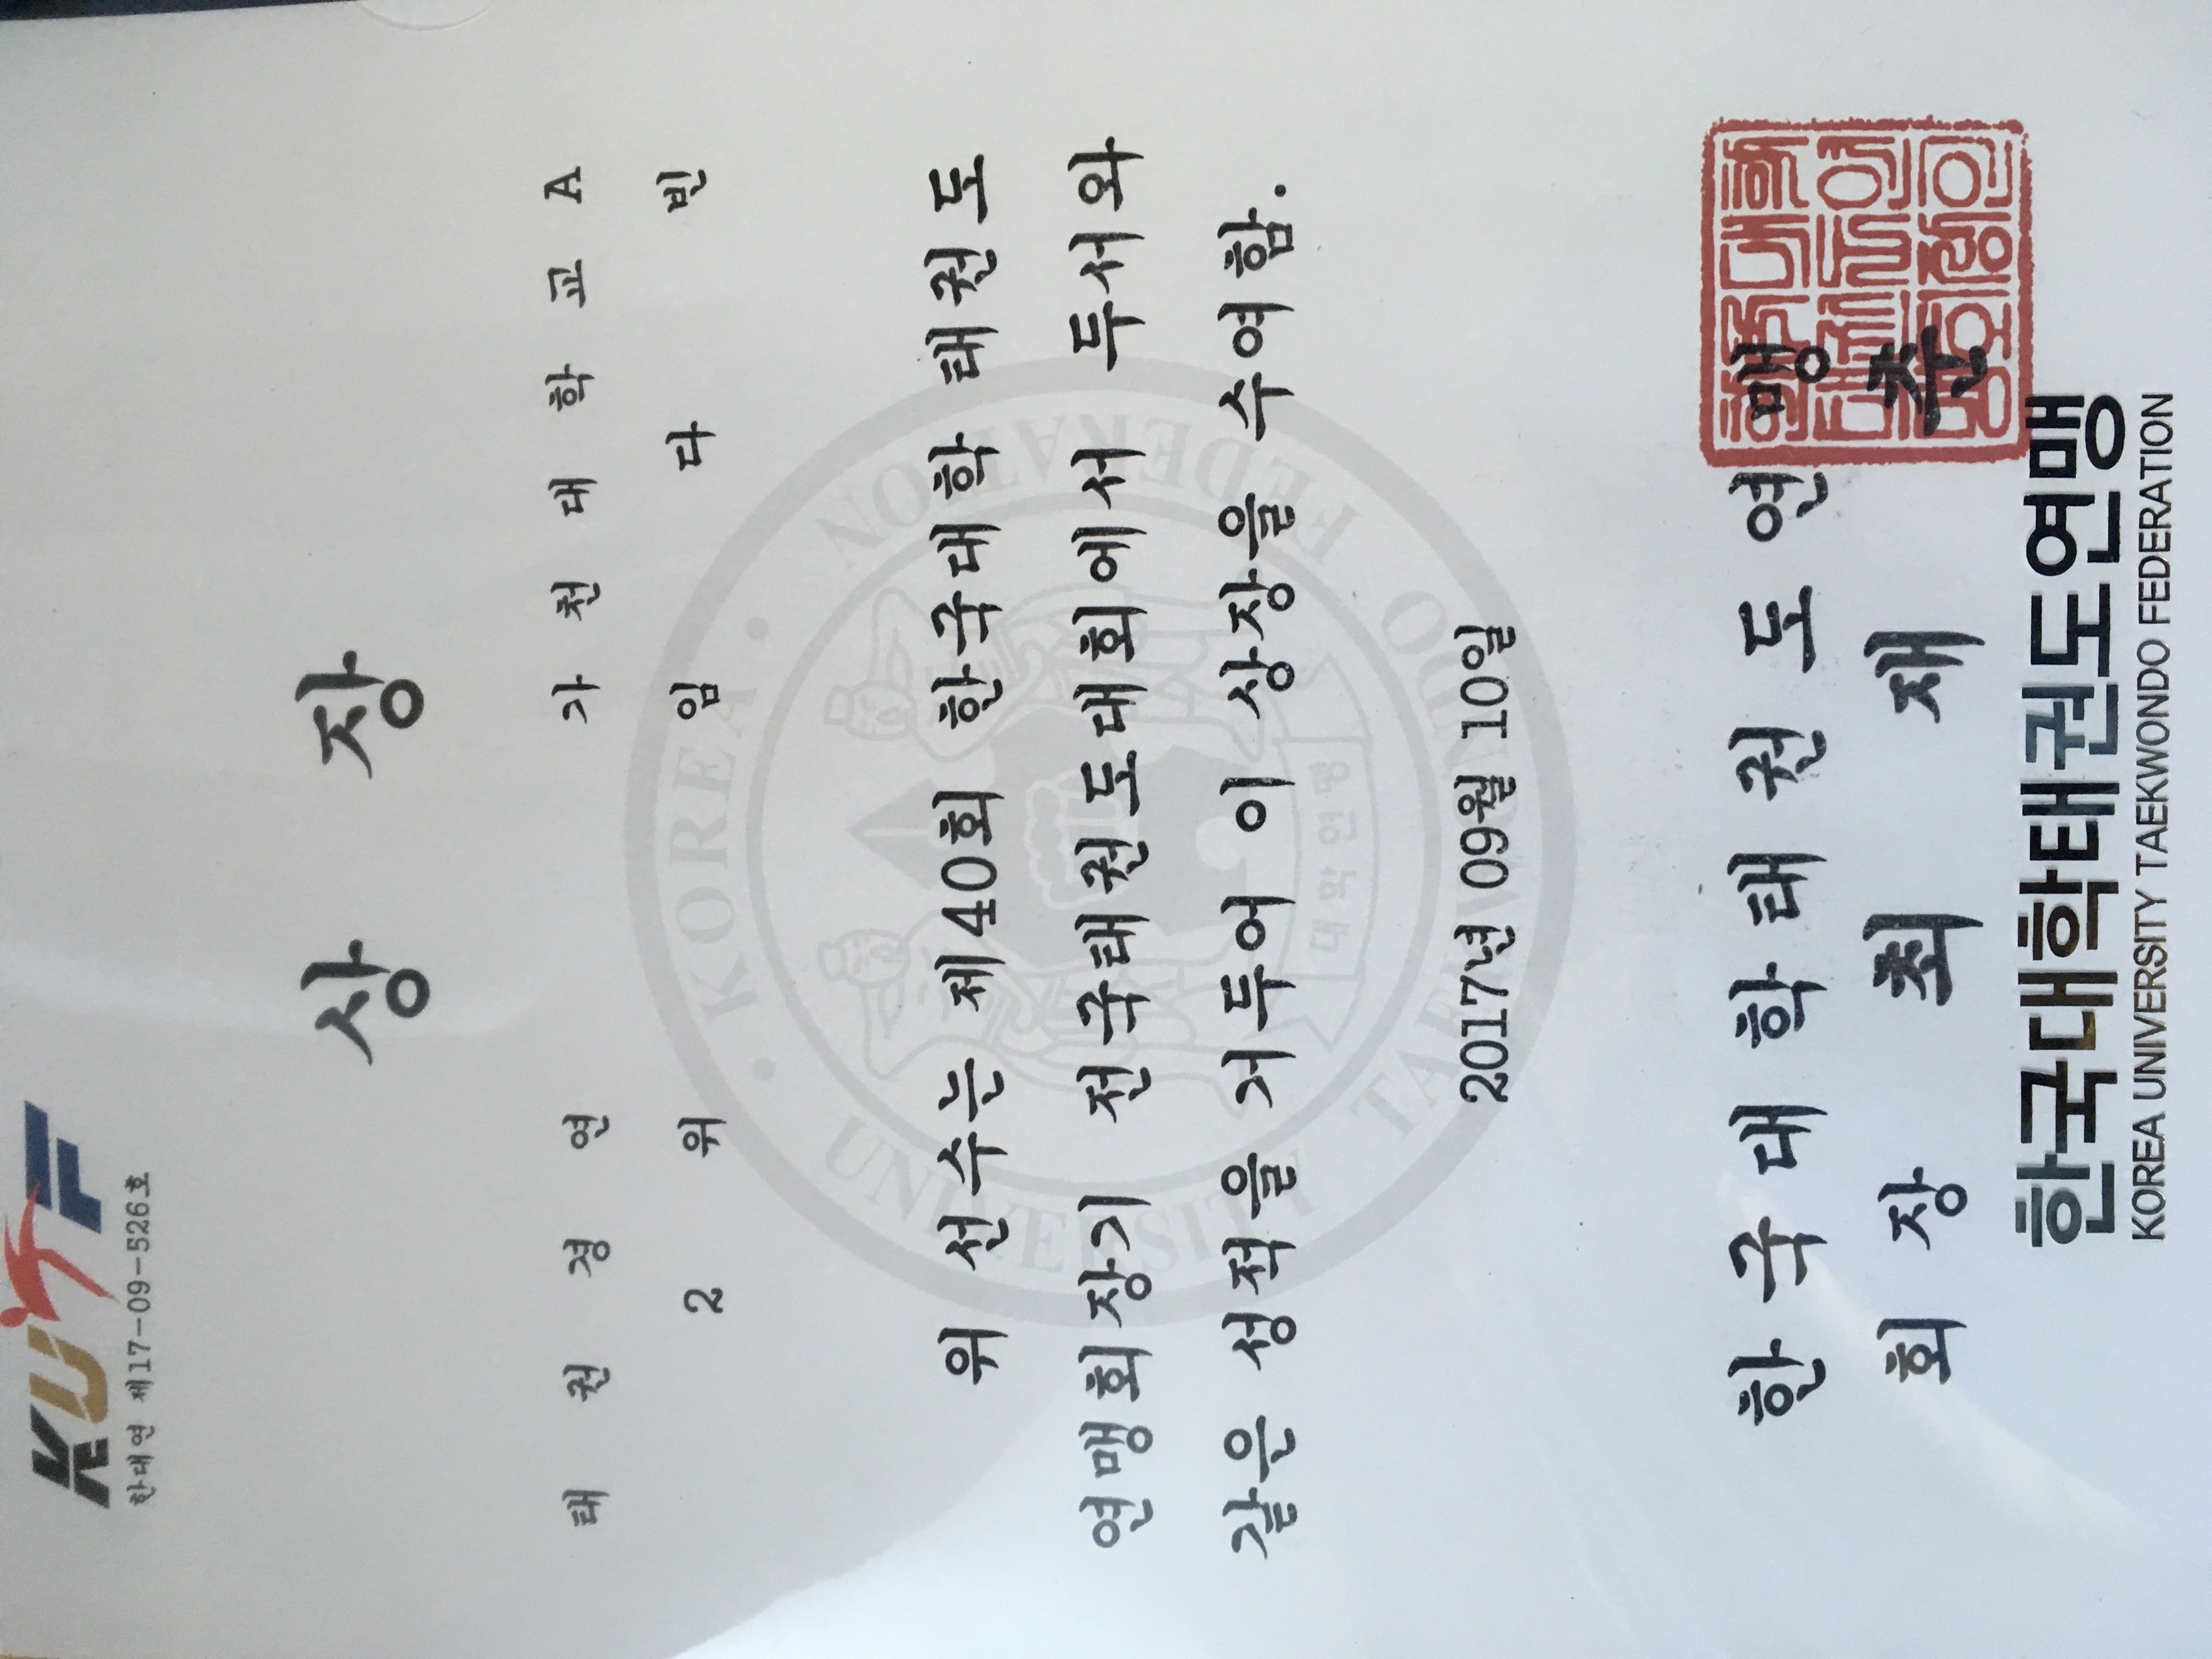 KUTF
한대연 제17-09-526호
상 장
태 권 경 연 가 천 대 학 교 A
2 위 임 다 빈
위 선수는 제40회 한국대학 태권도
연맹회장기 전국태권도대회에서 두서와
같은 성적을 거두어 이 상장을 수여함.
2017년 09월 10일
한 국 대 학 태 권 도 연 맹
회 장 최 재 춘
한국대학태권도연맹
KOREA UNIVERSITY TAEKWONDO FEDERATION
KOREA UNIVERSITY TAEKWONDO FEDERATION
대학연맹